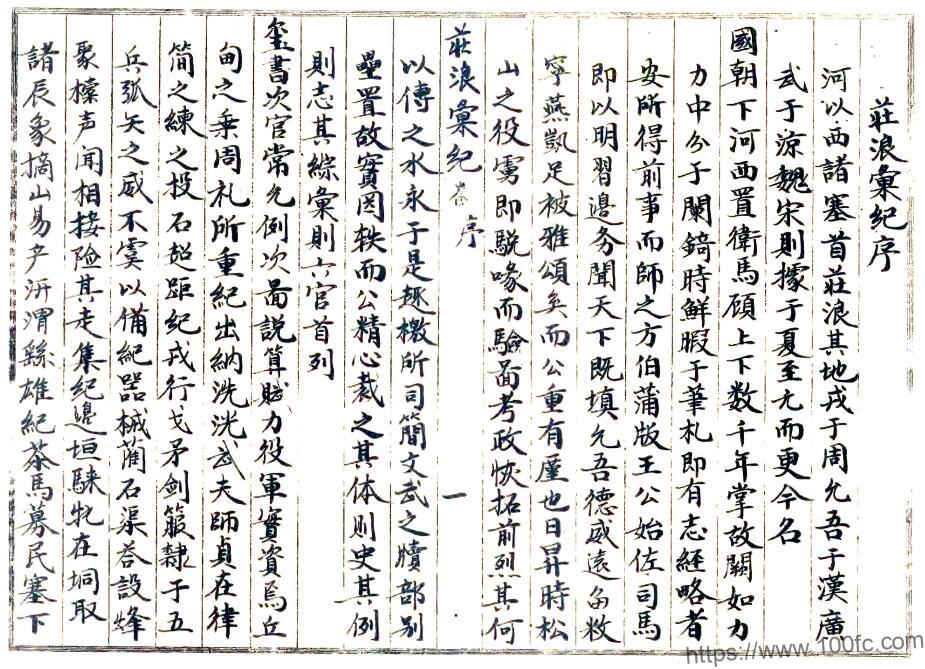 莊浪彙紀序
河以西諸塞首莊浪其地戎于周允吾于漢廣
武于涼魏宋則據于夏至元而更今名
國朝下河西置衛馬顧上下数千年掌故闕如力
力中分于闌錡時鮮暇于筆札即有志經略者
安所得前事而師之方伯蒲版王公始佐司馬
即以明習邊务聞天下既填允吾德威遠畣敉
寧燕凱足被雅頌矣而公重有廑也日昇時松
山之役雩即駾喙而驗畣考政恢拓前烈其何
莊浪彙紀 卷 序 一
以傳之水永于是趣檄所司簡文武之牘部別
壘置故實罔軼而公精心裁之其体則史其例
則志其綜彙則六官首列
璽書次官常允例次畣說算賦力役軍實資焉丘
甸之乘周礼所重紀出納洸洸武夫師貞在律
簡之練之投石超距紀戎行戈矛劍箙隸于五
兵弧矢之威不虞以備紀器械藺石渠荅設烽
聚橾声聞相接险其走集紀邊垣騋牝在坰取
諸辰象摘山易产汧渭繇雄紀茶馬募民塞下
https://www.100fc.com